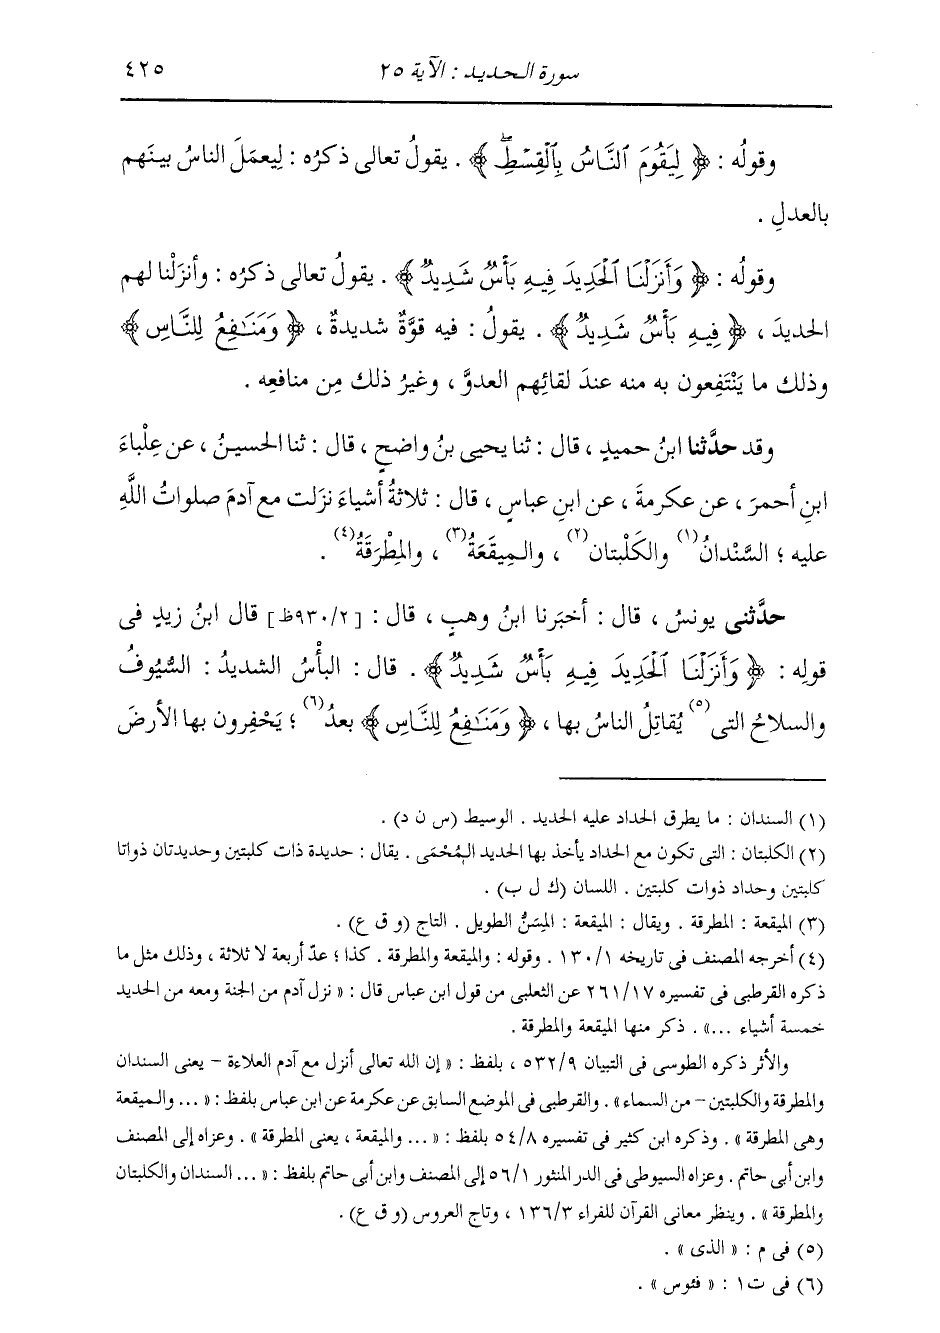 سورة الحديد : الآية ٢٥ ٤٢٥
وقولُه : ﴿ لِيَقُومَ ٱلنَّاسُ بِٱلْقِسْطِۖ ﴾ . يقولُ تعالى ذكرُه : لِيعمَلَ الناسُ بينَهم
بالعدلِ .
وقولُه : ﴿ وَأَنزَلْنَا ٱلْحَدِيدَ فِيهِ بَأْسٌ شَدِيدٌ ﴾ . يقولُ تعالى ذكرُه : وأنزَلْنا لهم
الحديدَ ، ﴿ فِيهِ بَأْسٌ شَدِيدٌ ﴾ . يقولُ : فيه قوَّةٌ شديدةٌ ، ﴿ وَمَنَٰفِعُ لِلنَّاسِ ﴾
وذلك ما يَنْتَفِعون به منه عندَ لقائِهم العدوَّ ، وغيرُ ذلك مِن منافعِه .
وقد حدَّثنا ابنُ حميدٍ ، قال : ثنا يحيى بنُ واضحٍ ، قال : ثنا الحسينُ ، عن عِلْباءَ
ابنِ أحمرَ ، عن عكرمةَ ، عن ابنِ عباسٍ ، قال : ثلاثةُ أشياءَ نزَلت مع آدمَ صلواتُ اللَّهِ
عليه ؛ السَّنْدانُ(١) والكَلْبتان(٢) ، والمِيقَعَةُ(٣) ، والمِطْرَقَةُ(٤) .
حدَّثنى يونسُ ، قال : أخبَرنا ابنُ وهبٍ ، قال : [٩٣٠/٢ظ] قال ابنُ زيدٍ فى
قولِه : ﴿ وَأَنزَلْنَا ٱلْحَدِيدَ فِيهِ بَأْسٌ شَدِيدٌ ﴾ . قال : البأْسُ الشديدُ : السُّيُوفُ
والسلاحُ التى(٥) يُقاتِلُ الناسُ بها ، ﴿ وَمَنَٰفِعُ لِلنَّاسِ ﴾ بعدُ(٦) ؛ يَحْفِرون بها الأرضَ
(١) السندان : ما يطرق الحداد عليه الحديد . الوسيط (س ن د) .
(٢) الكلبتان : التى تكون مع الحداد يأخذ بها الحديد المُحْمَى . يقال : حديدة ذات كلبتين وحديدتان ذواتا
كلبتين وحداد ذوات كلبتين . اللسان (ك ل ب) .
(٣) الميقعة : المطرقة . ويقال : الميقعة : المِسَنُّ الطويل . التاج (و ق ع) .
(٤) أخرجه المصنف فى تاريخه ١٣٠/١ . وقوله : والميقعة والمطرقة . كذا ؛ عدّ أربعة لا ثلاثة ، وذلك مثل ما
ذكره القرطبى فى تفسيره ٢٦١/١٧ عن الثعلبى من قول ابن عباس قال : « نزل آدم من الجنة ومعه من الحديد
خمسة أشياء ...» . ذكر منها الميقعة والمطرقة .
والأثر ذكره الطوسى فى التبيان ٥٣٢/٩ ، بلفظ : « إن الله تعالى أنزل مع آدم العلاءة - يعنى السندان
والمطرقة والكلبتين - من السماء» . والقرطبى فى الموضع السابق عن عكرمة عن ابن عباس بلفظ : « ... والميقعة
وهى المطرقة » . وذكره ابن كثير فى تفسيره ٥٤/٨ بلفظ : « ... والميقعة ، يعنى المطرقة » . وعزاه إلى المصنف
وابن أبى حاتم . وعزاه السيوطى فى الدر المنثور ٥٦/١ إلى المصنف وابن أبى حاتم بلفظ : « ... السندان والكلبتان
والمطرقة » . وينظر معانى القرآن للفراء ١٣٦/٣ ، وتاج العروس (و ق ع) .
(٥) فى م : « الذى » .
(٦) فى ت١ : « فئوس » .